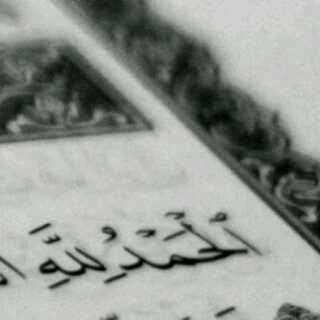 اَلْحَمْدُ لِلَّهِ